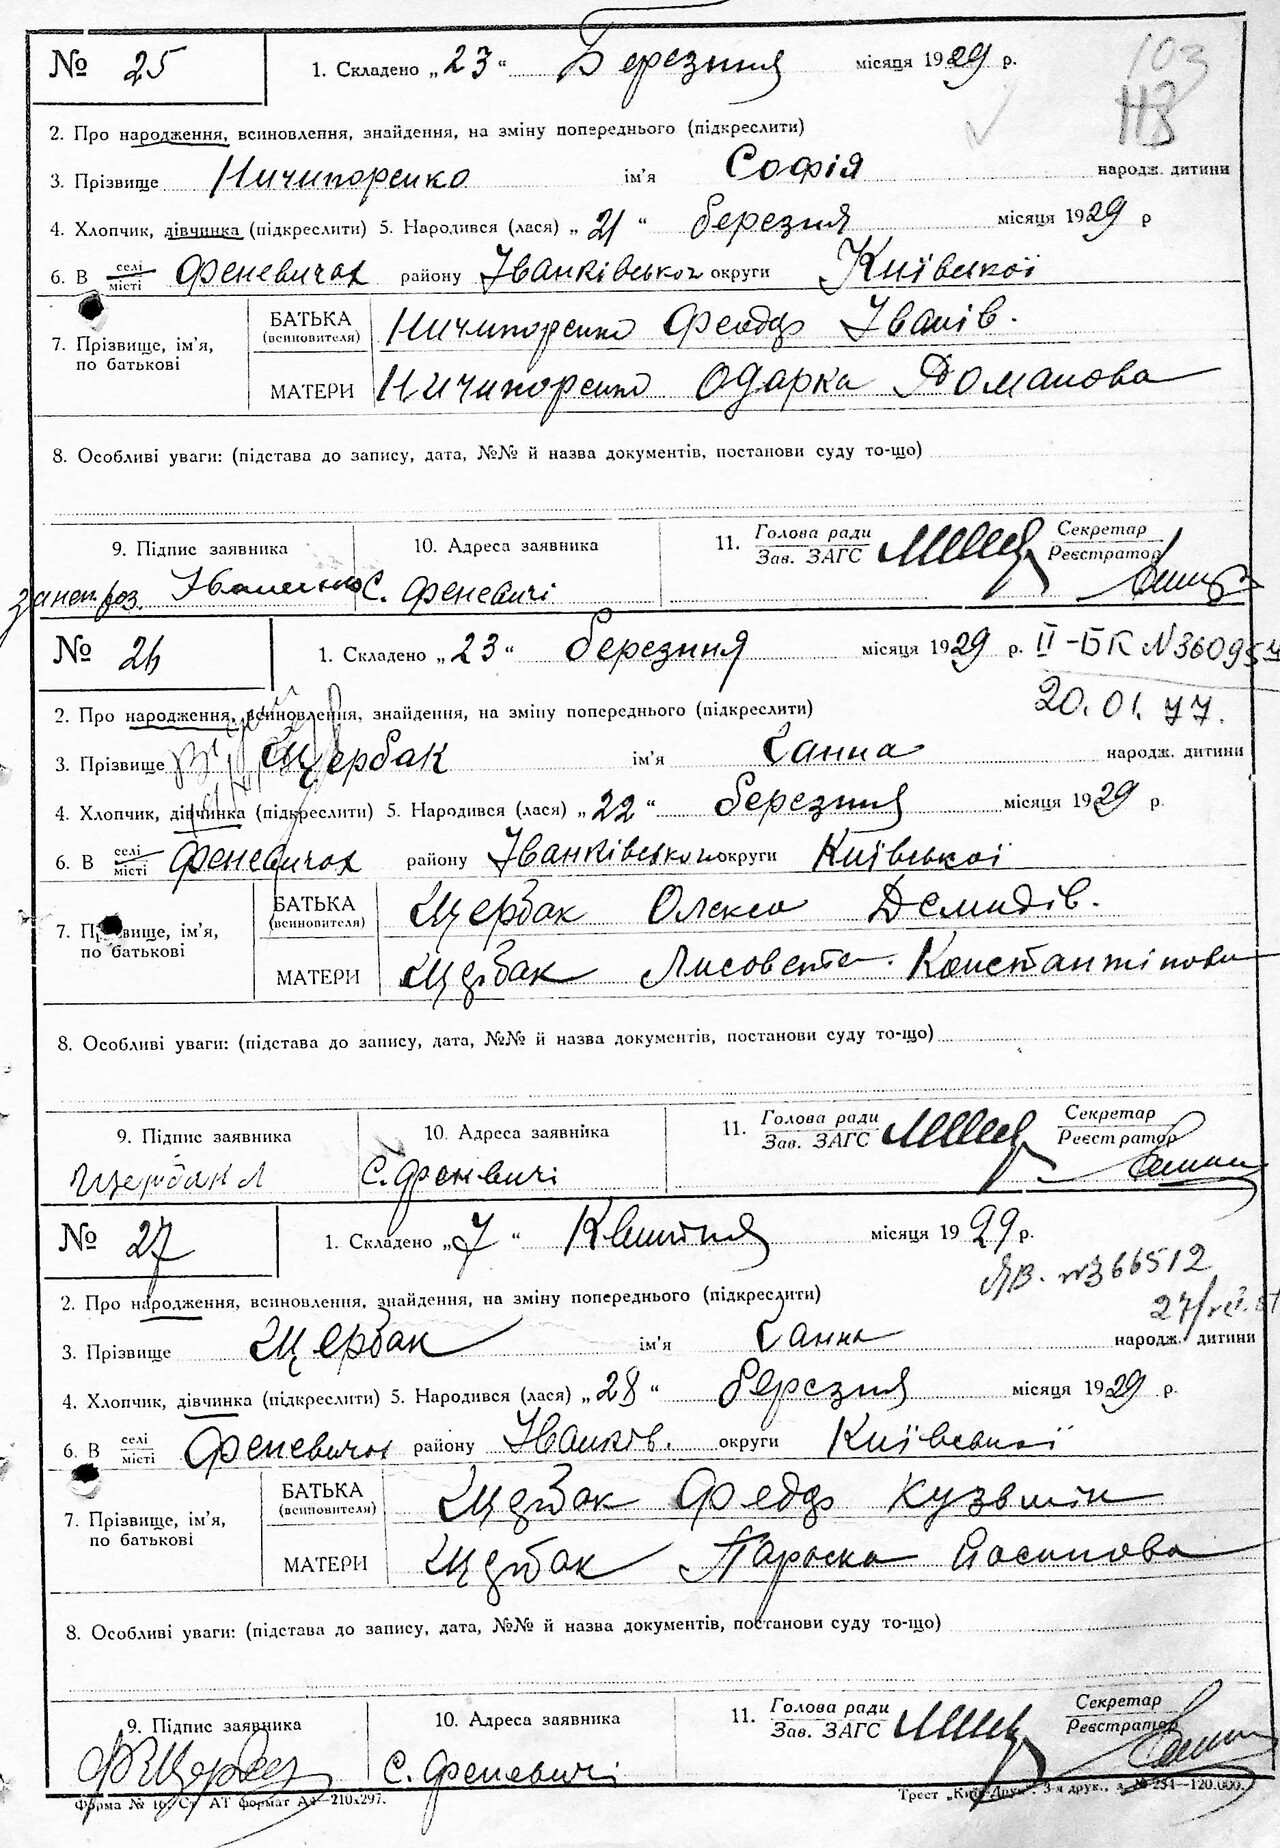 № 25 1. Складено „23“ Березня місяця 1929 р. 103
113
2. Про народження, всиновлення, знайдення, на зміну попереднього (підкреслити)
3. Прізвище Ничипоренко ім'я Софія народж. дитини
4. Хлопчик, дівчинка (підкреслити) 5. Народився (лася) „21“ березня місяця 1929 р
6. В селі/місті Феневичах району Іванківського округи Київської
7. Прізвище, ім'я, по батькові
БАТЬКА (всиновителя) Ничипоренко Федор Іванів.
МАТЕРИ Ничипоренко Одарка Романова
8. Особливі уваги: (підстава до запису, дата, №№ й назва документів, постанови суду то-що)
9. Підпис заявника 10. Адреса заявника 11. Голова ради/Зав. ЗАГС Секретар/Реєстратор
за непроз. Іваненко С. Феневичі
№ 26 1. Складено „23“ березня місяця 1929 р. II-БК N 360954
20.01.77.
2. Про народження, всиновлення, знайдення, на зміну попереднього (підкреслити)
3. Прізвище Щербак ім'я Ганна народж. дитини
4. Хлопчик, дівчинка (підкреслити) 5. Народився (лася) „22“ березня місяця 1929 р.
6. В селі/місті Феневичах району Іванківського округи Київської
7. Прізвище, ім'я, по батькові
БАТЬКА (всиновителя) Щербак Олекса Демидів.
МАТЕРИ Щербак Лисовета Константінова
8. Особливі уваги: (підстава до запису, дата, №№ й назва документів, постанови суду то-що)
9. Підпис заявника 10. Адреса заявника 11. Голова ради/Зав. ЗАГС Секретар/Реєстратор
Щербак С. Феневичі
№ 27 1. Складено „7“ Квітня місяця 1929 р.
ЯВ. №366512
27/
2. Про народження, всиновлення, знайдення, на зміну попереднього (підкреслити)
3. Прізвище Щербак ім'я Ганна народж. дитини
4. Хлопчик, дівчинка (підкреслити) 5. Народився (лася) „28“ березня місяця 1929 р.
6. В селі/місті Феневичах району Іванків. округи Київської
7. Прізвище, ім'я, по батькові
БАТЬКА (всиновителя) Щербак Федор Кузьмін
МАТЕРИ Щербак Параска Йосипова
8. Особливі уваги: (підстава до запису, дата, №№ й назва документів, постанови суду то-що)
9. Підпис заявника 10. Адреса заявника 11. Голова ради/Зав. ЗАГС Секретар/Реєстратор
Ф Щербак С. Феневичі
Форма № 16. Ст. АТ формат А4—210x297. Трест „Київ-Друк“ 3-я друк., з. № 234—120.000.